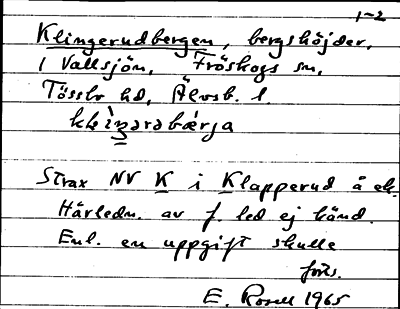 1-2
Klingerudbergen, bergshöjder,
i Vallsjön, Fröskogs sn,
Tössbo hd, Älvsb. l.
Strax NV K i Klapperud å ek.
Härledn. av f. led ej känd.
Enl. en uppgift skulle
E. Rosell 1965